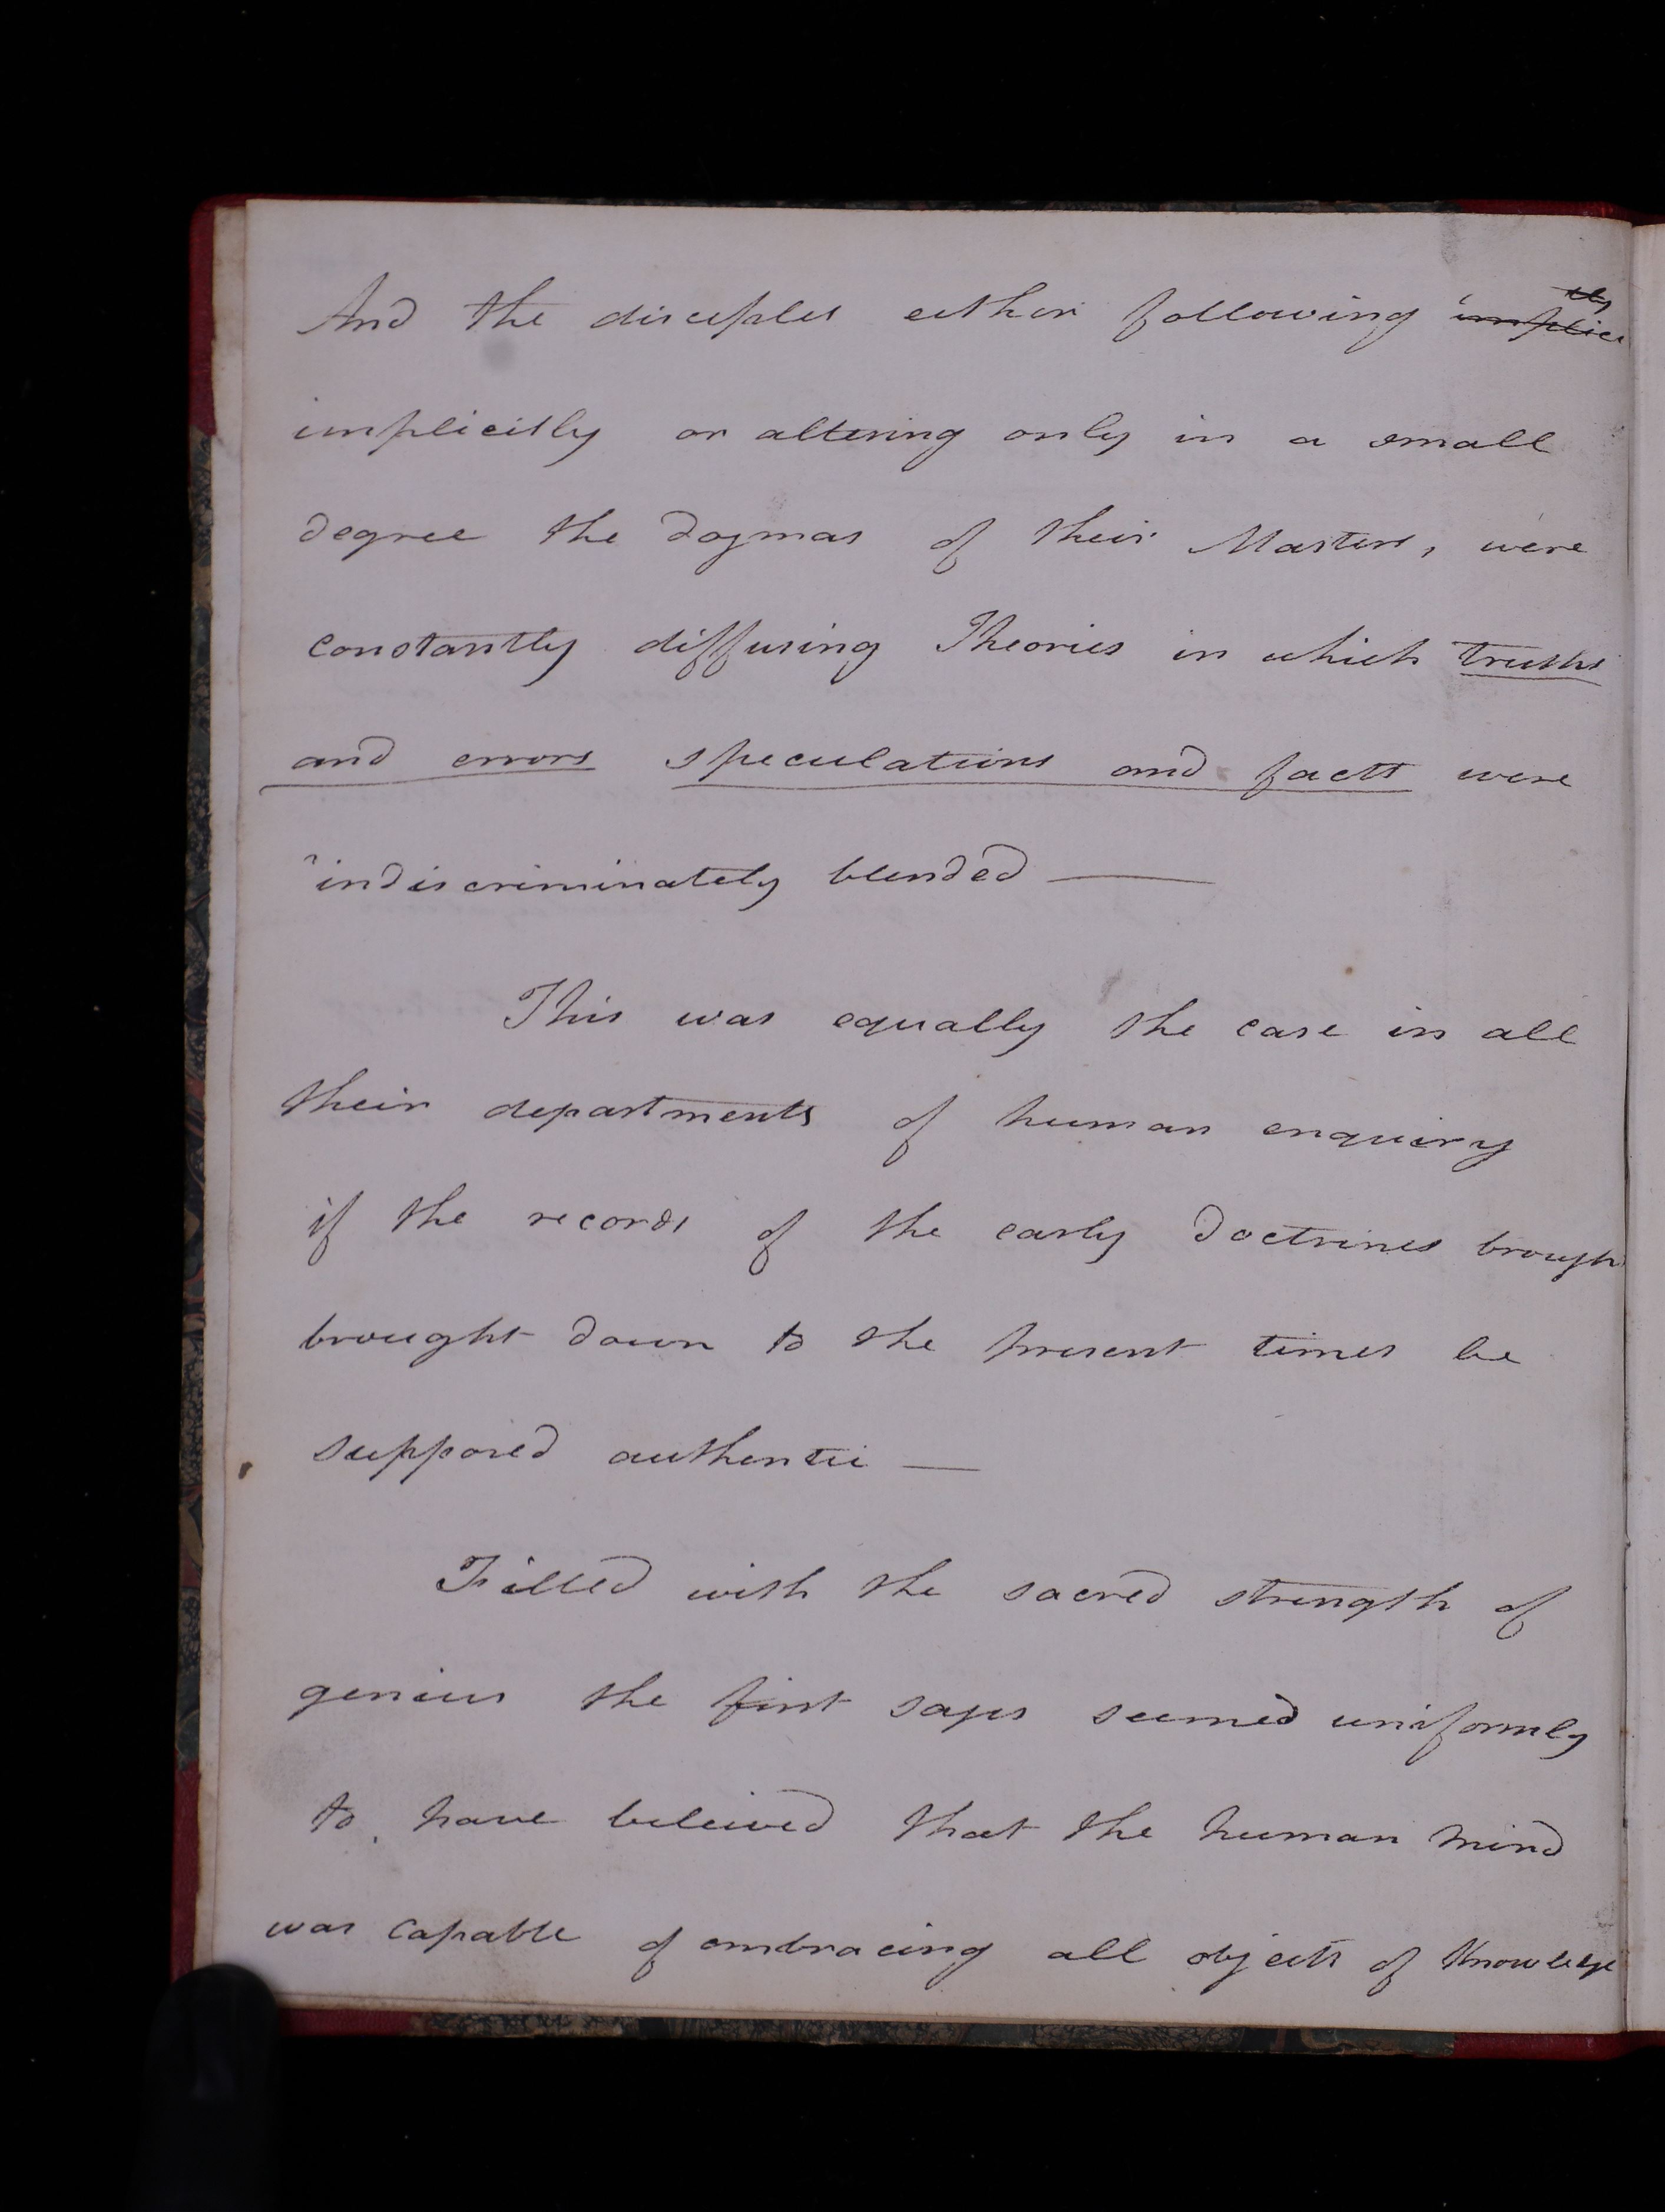 And the disciples either following implicitly
implicitly or altering only in a small
degree the dogmas of their Masters, were
constantly diffusing Theories in which truths
and errors speculations and facts were
indiscriminately blended —
This was equally the case in all
their departments of human enquiry
if the records of the early doctrines brough
brought down to the present times be
supposed authentic —
Filled with the sacred strength of
genius the first sages seemed uniformly
to have beleived that the human mind
was capable of embracing all objects of Knowledge